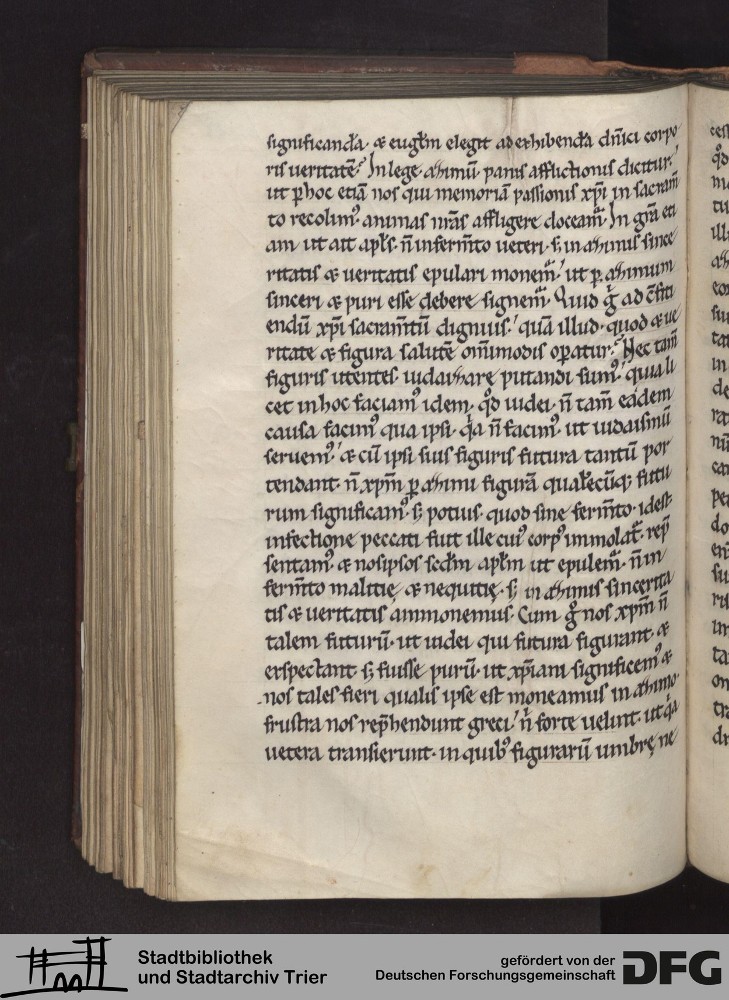 significanda, & eugl̄m elegit ad exhibenda dn̄ici corpo
ris veritatē. In lege azimū panis afflictionis dicitur.
ut p hoc etiā nos qui memoriā passionis xp̄i in sacram̄
to recolim᷒ animas nr̄as affligere doceam̄. In gr̄a eti
am ut ait apl̄s. n̄ in ferm̄to veteri. s; in azimis since
ritatis & veritatis epulari monem̄. ut p azimum
sinceri & puri esse debere signem̄. Quid g̊ ad c̄fiti
endū xp̄i sacram̄tū dignius. quā illud. quod & ve
ritate & figura salutē om̄imodis opatur. Nec tam̄
figuris utentes iudaizare putandi sum᷒. quia li
cet in hoc faciam᷒ idem. qd̄ iudei. n̄ tam̄ eadem
causa facim᷒ qua ipsi. q̇a n̄ facim᷒ ut iudaismū
seruem᷒. & cū ipsi suis figuris futura tantū por
tendant. n̄ xpm̄ p azimi figurā qualecūq; futu
rum significam᷒. s; potius. quod sine ferm̄to. idest
infectione peccati fuit ille cui᷒ corp᷒ immolat̄. rep̄
sentam᷒. & nosipsos scdm̄ aplm̄ ut epulem̄. n̄ in
ferm̄to malitię, & nequitię. s; in azimis sincerita
tis & veritatis ammonemus. Cum g̊ nos xpm̄ n̄
talem futurū. ut iudei qui futura figurant. &
exspectant s; fuisse purū. ut xp̄iani significem᷒ &
nos tales fieri qualis ipse est moneamus in azimo.
frustra nos rep̄hendunt greci. n̄ forte velint. ut q̇a
uetera transierunt. in quib᷒ figurarū umbrę ne
Stadtbibliothek
und Stadtarchiv Trier
gefördert von der
Deutschen Forschungsgemeinschaft
DFG